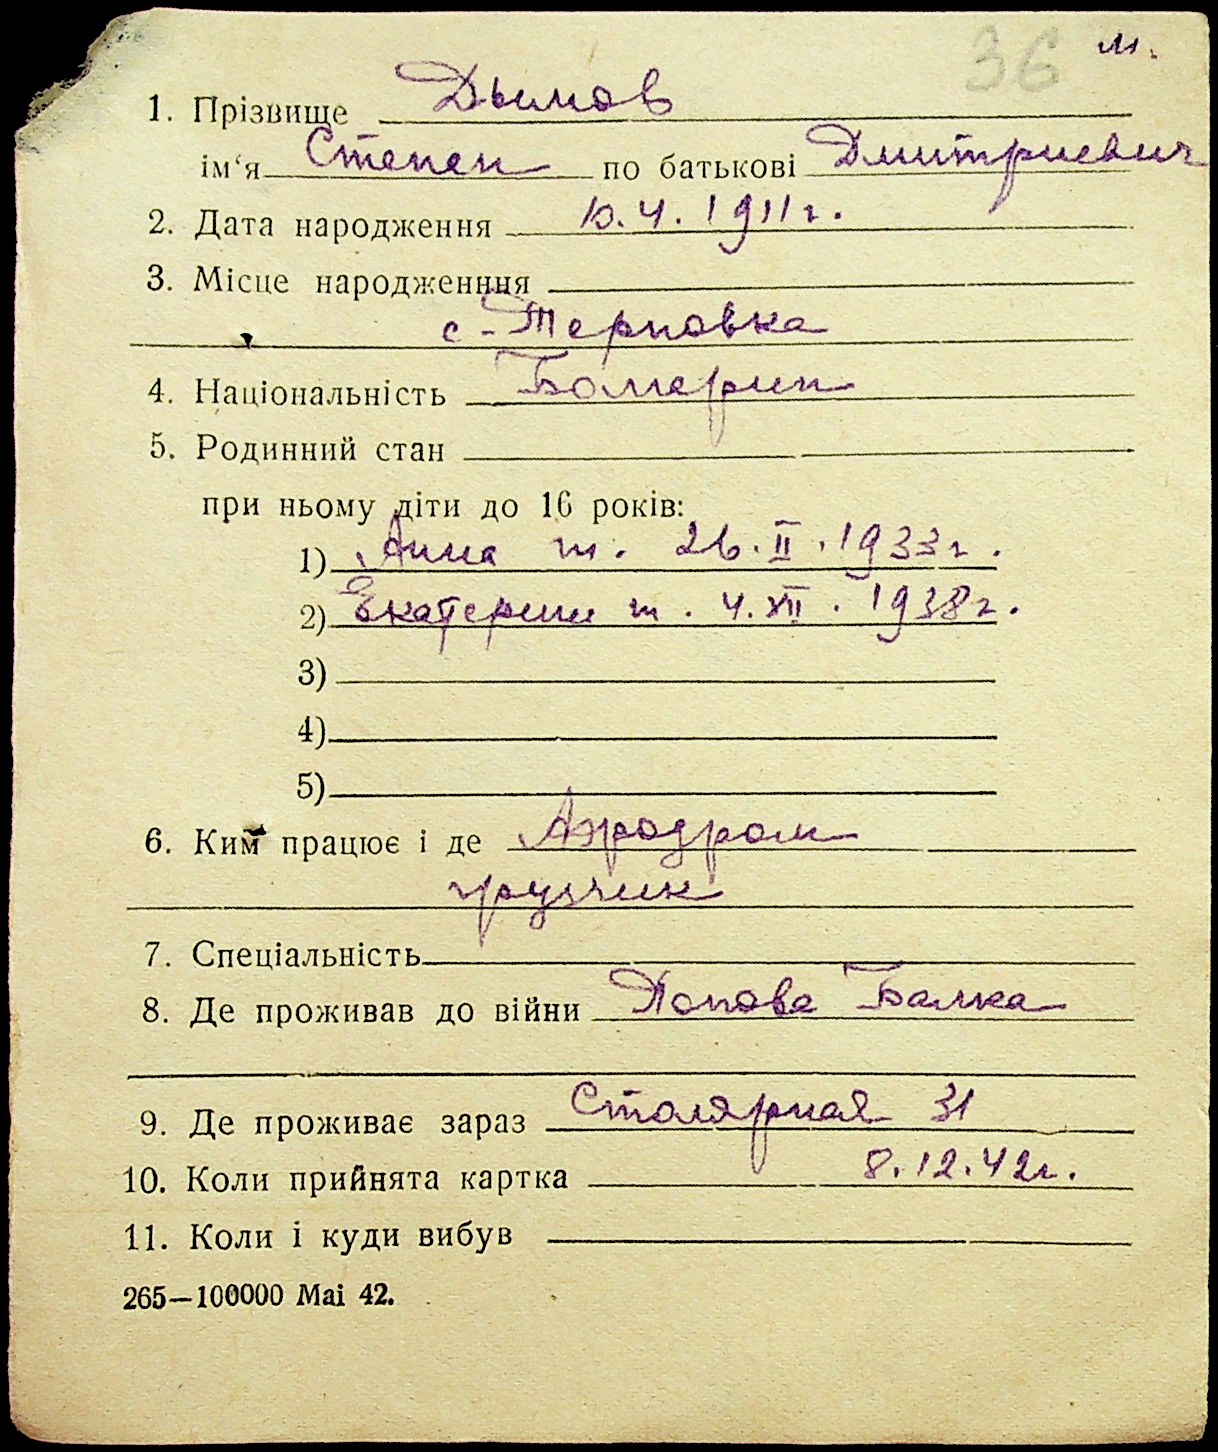 36 м.
1. Прізвище Дымов
ім‘я Степан по батькові Дмитриевич
2. Дата народження 10.4.1911г.
3. Місце народженння
с-Терновка
4. Національність Болгарин
5. Родинний стан
при ньому діти до 16 років:
1) Анна т. 26.II.1933г.
2) Екатерина т. 4.XII.1938г.
3)
4)
5)
6. Ким працює і де Аэродром
грузчик
7. Спеціальність
8. Де проживав до війни Попова Балка
9. Де проживає зараз Столярная 31
10. Коли прийнята картка 8.12.42г.
11. Коли і куди вибув
265—100000 Mai 42.